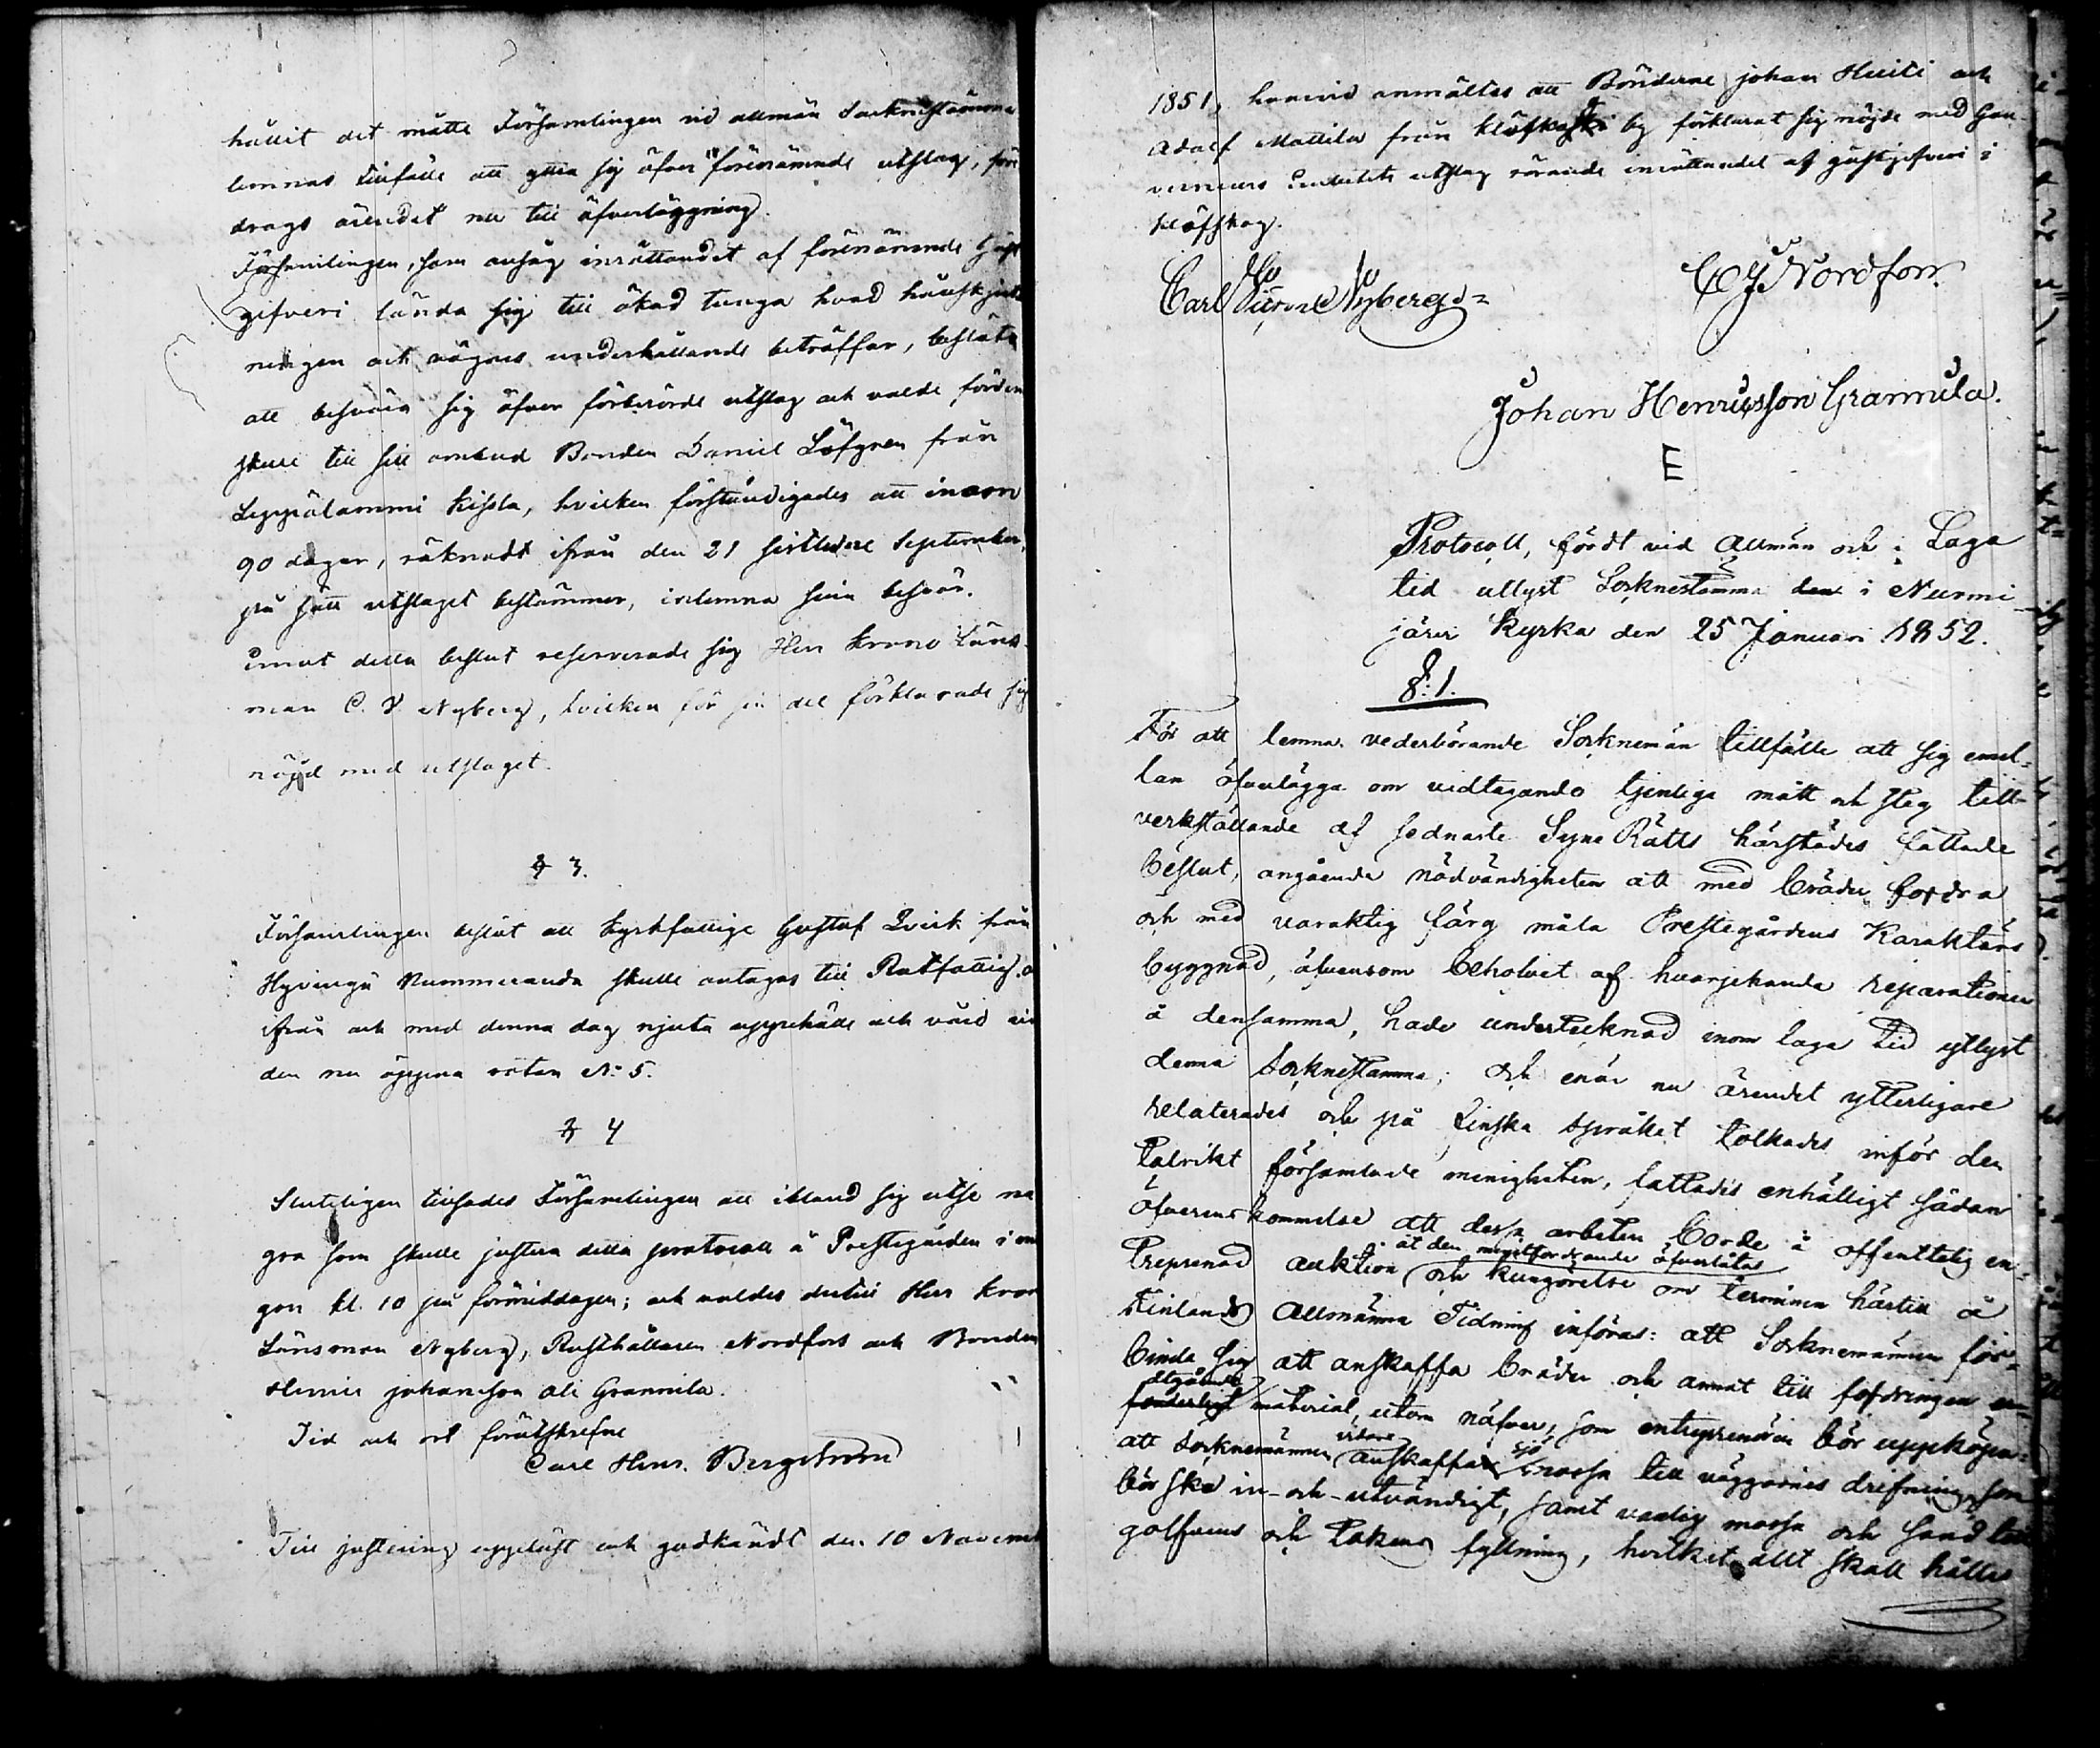 hållit det måtte Församlingen vid allmän Socknestämma
lemnas tillfälle att yttra sig öfver förenämnde utslag, före
drogs ärendet nu till öfverläggning.
Församlingen, som ansåg inrättandet af förenämnde Gäst
gifveri lända sig till ökad tunga hvad hållskjuts
ningen och vägars underhållande beträffar, beslöto
att besvära sig öfver förberörde utslag och valde förden
skull till sitt ombud Bonden Daniel Löfgren från
Leppälammi Kissla, hvilken förständigades att inom
90 dagar, räknadt ifrån den 21 sistledne September,
på sätt utslaget bestämmer, inlemna sina besvär.
Emot detta beslut reserverade sig Herr Krono Läns-
man C. V. Nyberg, hvilken för sin del förklarade sig
nöjd med utslaget.
§ 3.
Församlingen beslöt att kyrkfattige Gustaf Qvick från
Hyvingä Nummeranda skulle antagas till Rotfattig o
ifrån och med denna dag njuta uppehälle och vård vid
den nu öppna roten No 5.
§ 4
Sluteligen tillsades Församlingen att ibland sig utse nå
gra som skulle justera detta protocoll å Prestegården i mor
gon kl. 10 på förmiddagen; och valdes dertill Herr Kron
Länsman Nyberg, Rusthållaren Nordfors och Bonden
Henric Johansson Ali Grannila.
Tid och ort förutskrefne
Carl Henr. Bergström
Till justering uppläst och godkändt den 10 Novemb
1851, hvarvid anmältes att Bönderne Johan Huiti och
Adolf Mattila från Klöfskog by förklarat sig nöjde med Gou
verneurs Embetets utslag rörande inrättandet af gästgifveri i
Klöfskog.
Carl Nyberg
C J Nordfors.
Johan Henricsson Grannila.
E
Protocoll, fördt vid Allmän och i Laga
tid utlyst Socknestämma den i Nurmi
järvi Kyrka den 25 Januari 1852.
§: 1.
För att lemna vederbörande Socknemän tillfälle att sig emel-
lan öfverlägga om vidtagande tjenliga mått och steg till
verkställande af sednaste Syne Rätts härstädes fattade
beslut, angående nödvändigheten att med bräder fodra
och med varaktig färg måla Prestegårdens Karaktärs
byggnad, äfvensom behofvet af hvarjehanda reparationer
å densamma, hade undertecknad inom laga tid utlyst
denna Socknestämma; och enär nu ärendet ytterligare
relaterades och på finska språket tolkades inför den
talrikt församlade menigheten, fattades enhälligt sådan
öfverenskommelse att dessa arbeten borde å offentelig en-
treprenad auktion åt den minstfordrande öfverlåtas och kungörelse om terminen härtill å
Finlands Allmänna Tidning införas: att Socknemännen för-
binda sig att anskaffa bräder och annat till fodringen er-
foderligt åtgående material, utom näfver, som entreprenören bör uppköpa:
att Socknemännen vidare anskaffa sjö mossa till väggarnes drifning, som
bör ske in- och utvändigt, samt vanlig mossa och sand till
golfvens och takens fyllning, hvilket allt skall hållas